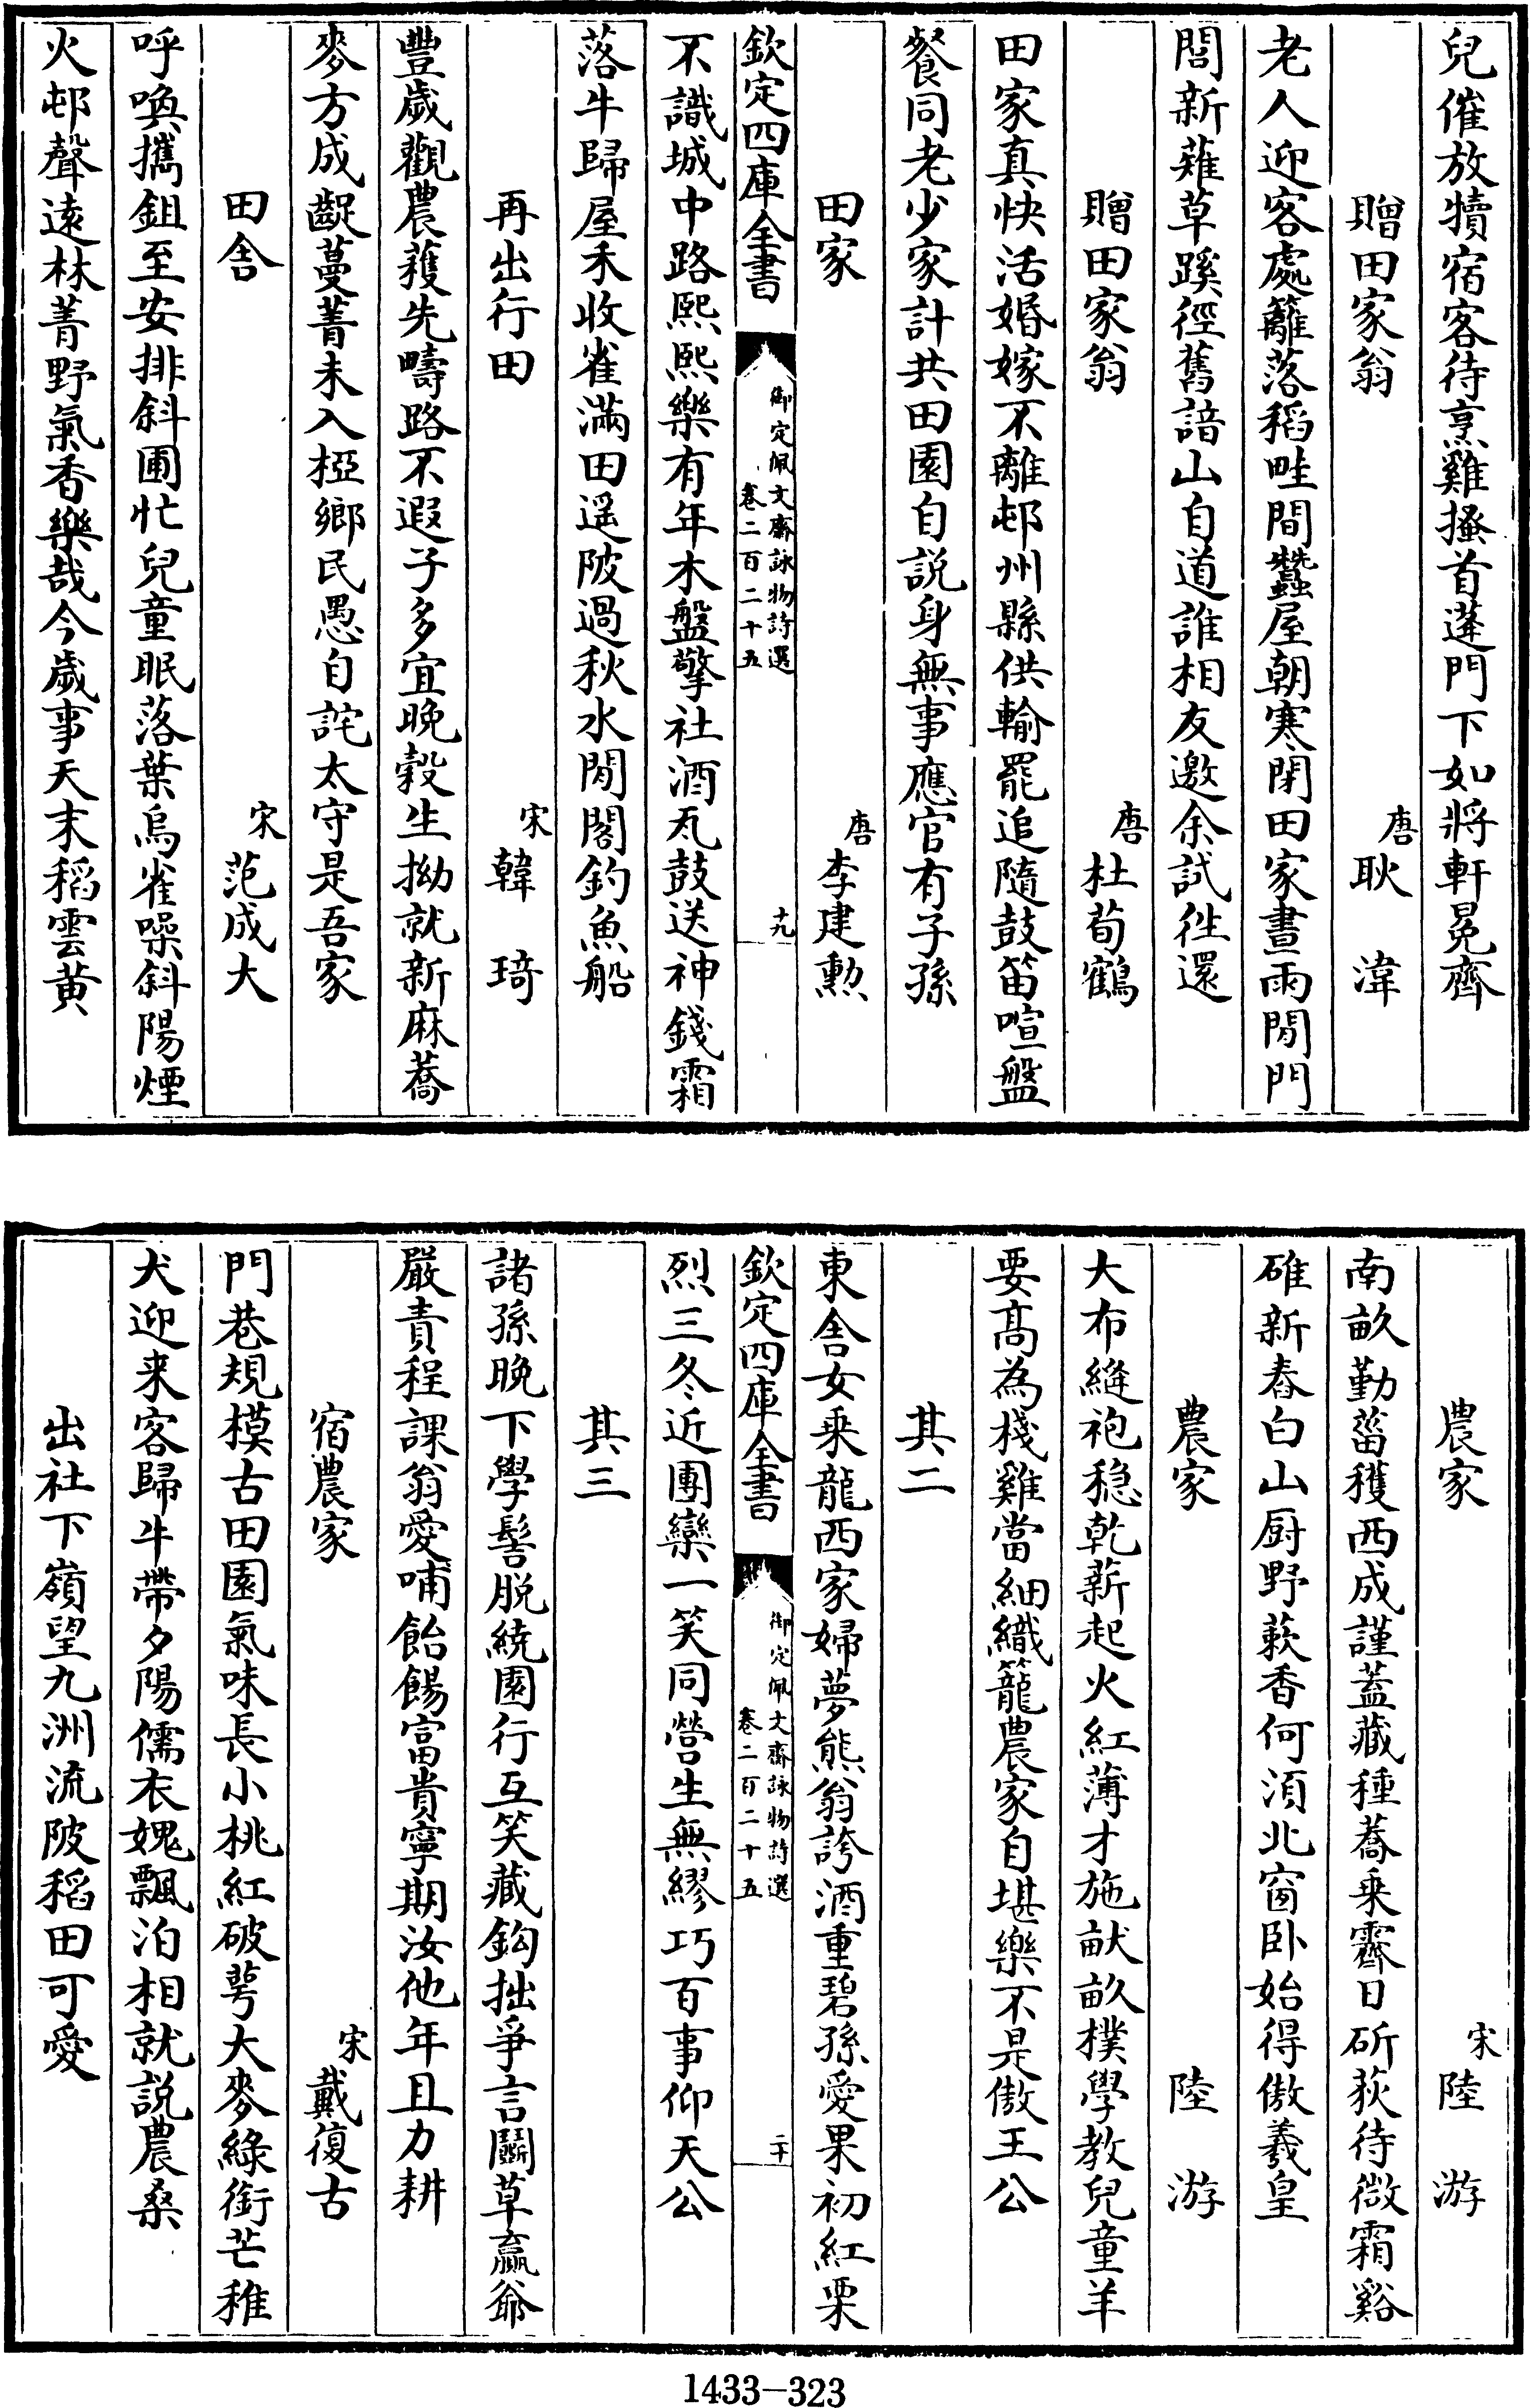 兒催放犢宿客待烹雞搔首蓬門下如將軒冕齊
贈田家翁　唐耿湋
老人迎客處籬落稻畦間蠶屋朝寒閉田家晝雨閒門
閭新薙草蹊徑舊諳山自道誰相友邀余試徃還
贈田家翁　唐杜荀鶴
田家真快活婚嫁不離邨州縣供輸罷追隨鼓笛喧盤
餐同老少家計共田園自説身無事應官有子孫
田家　唐李建勲
欽定四庫全書　御定佩文齋詠物詩選　卷二百二十五　十九
不識城中路熙熙樂有年木盤擎社酒瓦鼓送神錢霜
落牛歸屋禾收雀滿田遥陂過秋水閒閣釣魚船
再出行田　宋韓琦
豐歲觀農穫先疇路不遐子多宜晚榖生拗就新麻蕎
麥方成齪蔓菁未入椏鄉民愚自詫太守是吾家
田舍　宋范成大
呼喚攜鉏至安排斜圃忙兒童眠落葉烏雀噪斜陽煙
火邨聲遠林菁野氣香樂哉今歲事天末稻雲黄
農家　宋陸游
南畝勤菑穫西成謹蓋藏種蕎乗霽日斫荻待微霜谿
碓新舂白山厨野蔌香何須北窗卧始得傲羲皇
農家　陸游
大布縫袍穏乾薪起火紅薄才施畎畝樸學教兒童羊
要髙為棧雞當細織籠農家自堪樂不是傲王公
其二
東舍女乗龍西家婦夢熊翁誇酒重碧孫愛果初紅栗
欽定四庫全書　御定佩文齋詠物詩選　卷二百二十五　二十
烈三冬近團欒一笑同營生無繆巧百事仰天公
其三
諸孫晚下學髻脱繞園行互笑藏鈎拙爭言鬭草贏爺
嚴責程課翁愛哺飴餳富貴寧期汝他年且力耕
宿農家　宋戴復古
門巷規模古田園氣味長小桃紅破萼大麥綠銜芒稚
犬迎来客歸牛帶夕陽儒衣媿飄泊相就説農桑
出社下嶺望九洲流陂稻田可愛
1433-323